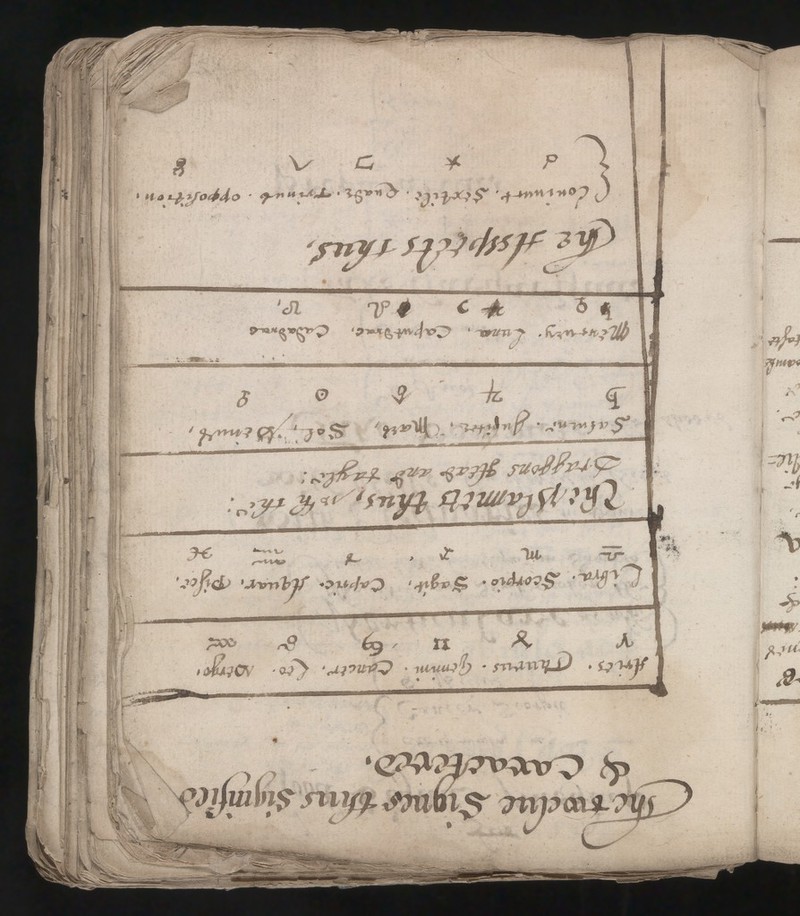 The twelue Signes thus Signified
& Caractered.
Aries. Thaurus. Gemini. Cancer. Leo. Vergo.
♈ ♉ ♊ ♋ ♌ ♍
Libra. Scorpio. Sagit. Capric. Aquar. Pisce.
♎ ♏ ♐ ♑ ♒ ♓
The planets thus, with the:
Draggons head and tayle:
Saturne. Jupiter. Mars. Sol. Venus.
♄ ♃ ♂ ☉ ♀
Mercury. Luna. Caputdrac. Cadadrac
☿ ☽ ☊ ☋
The Asspects thus.
Coniunct. Sextile. Quadr. Trinus. opposition.
☌ ⚹ □ △ ☍